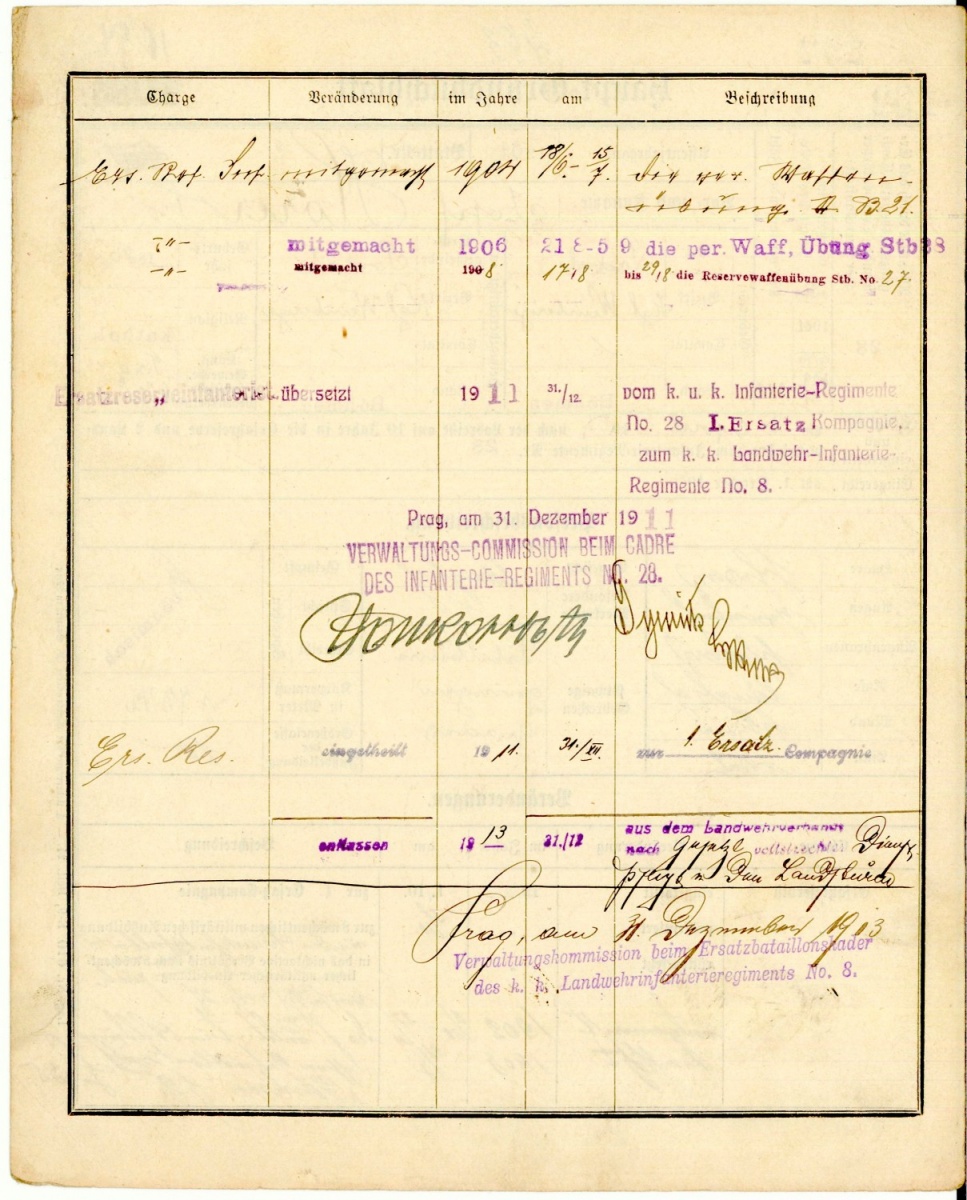 Charge Veränderung im Jahre am Beschreibung
Ers. Res. Inf. mitgemacht 1904 18/6.- 15/7. die per. Waffen-
übung. B. 21.
-"- mitgemacht 1906 21 8-5 9 die per. Waff, Übung Stb 38
-"- mitgemacht 1908 17/8 bis 29/8 die Reservewaffenübung Stb. No 27.
Ersatzreserveinfanterist „ übersetzt 1911 31./12. vom k. u. k. Infanterie-Regimente
No. 28 I. Ersatz Kompagnie,
zum k. k. Landwehr-Infanterie-
Regimente No. 8.
Prag, am 31. Dezember 1911
VERWALTUNGS-COMMISSION BEIM CADRE
DES INFANTERIE-REGIMENTS NO. 28.
Ers. Res. eingetheilt 1911. 31./XII. zur 1. Ersatz. Compagnie
entlassen 1913 31./12 aus dem Landwehrverhande
nach Gesetzl vollstreckter Dienst
pflicht in den Landsturm
Prag, am 31. Dezember 1913
Verwaltungskommission beim Ersatzbataillonskader
des k. k. Landwehrinfanterieregiments No. 8.